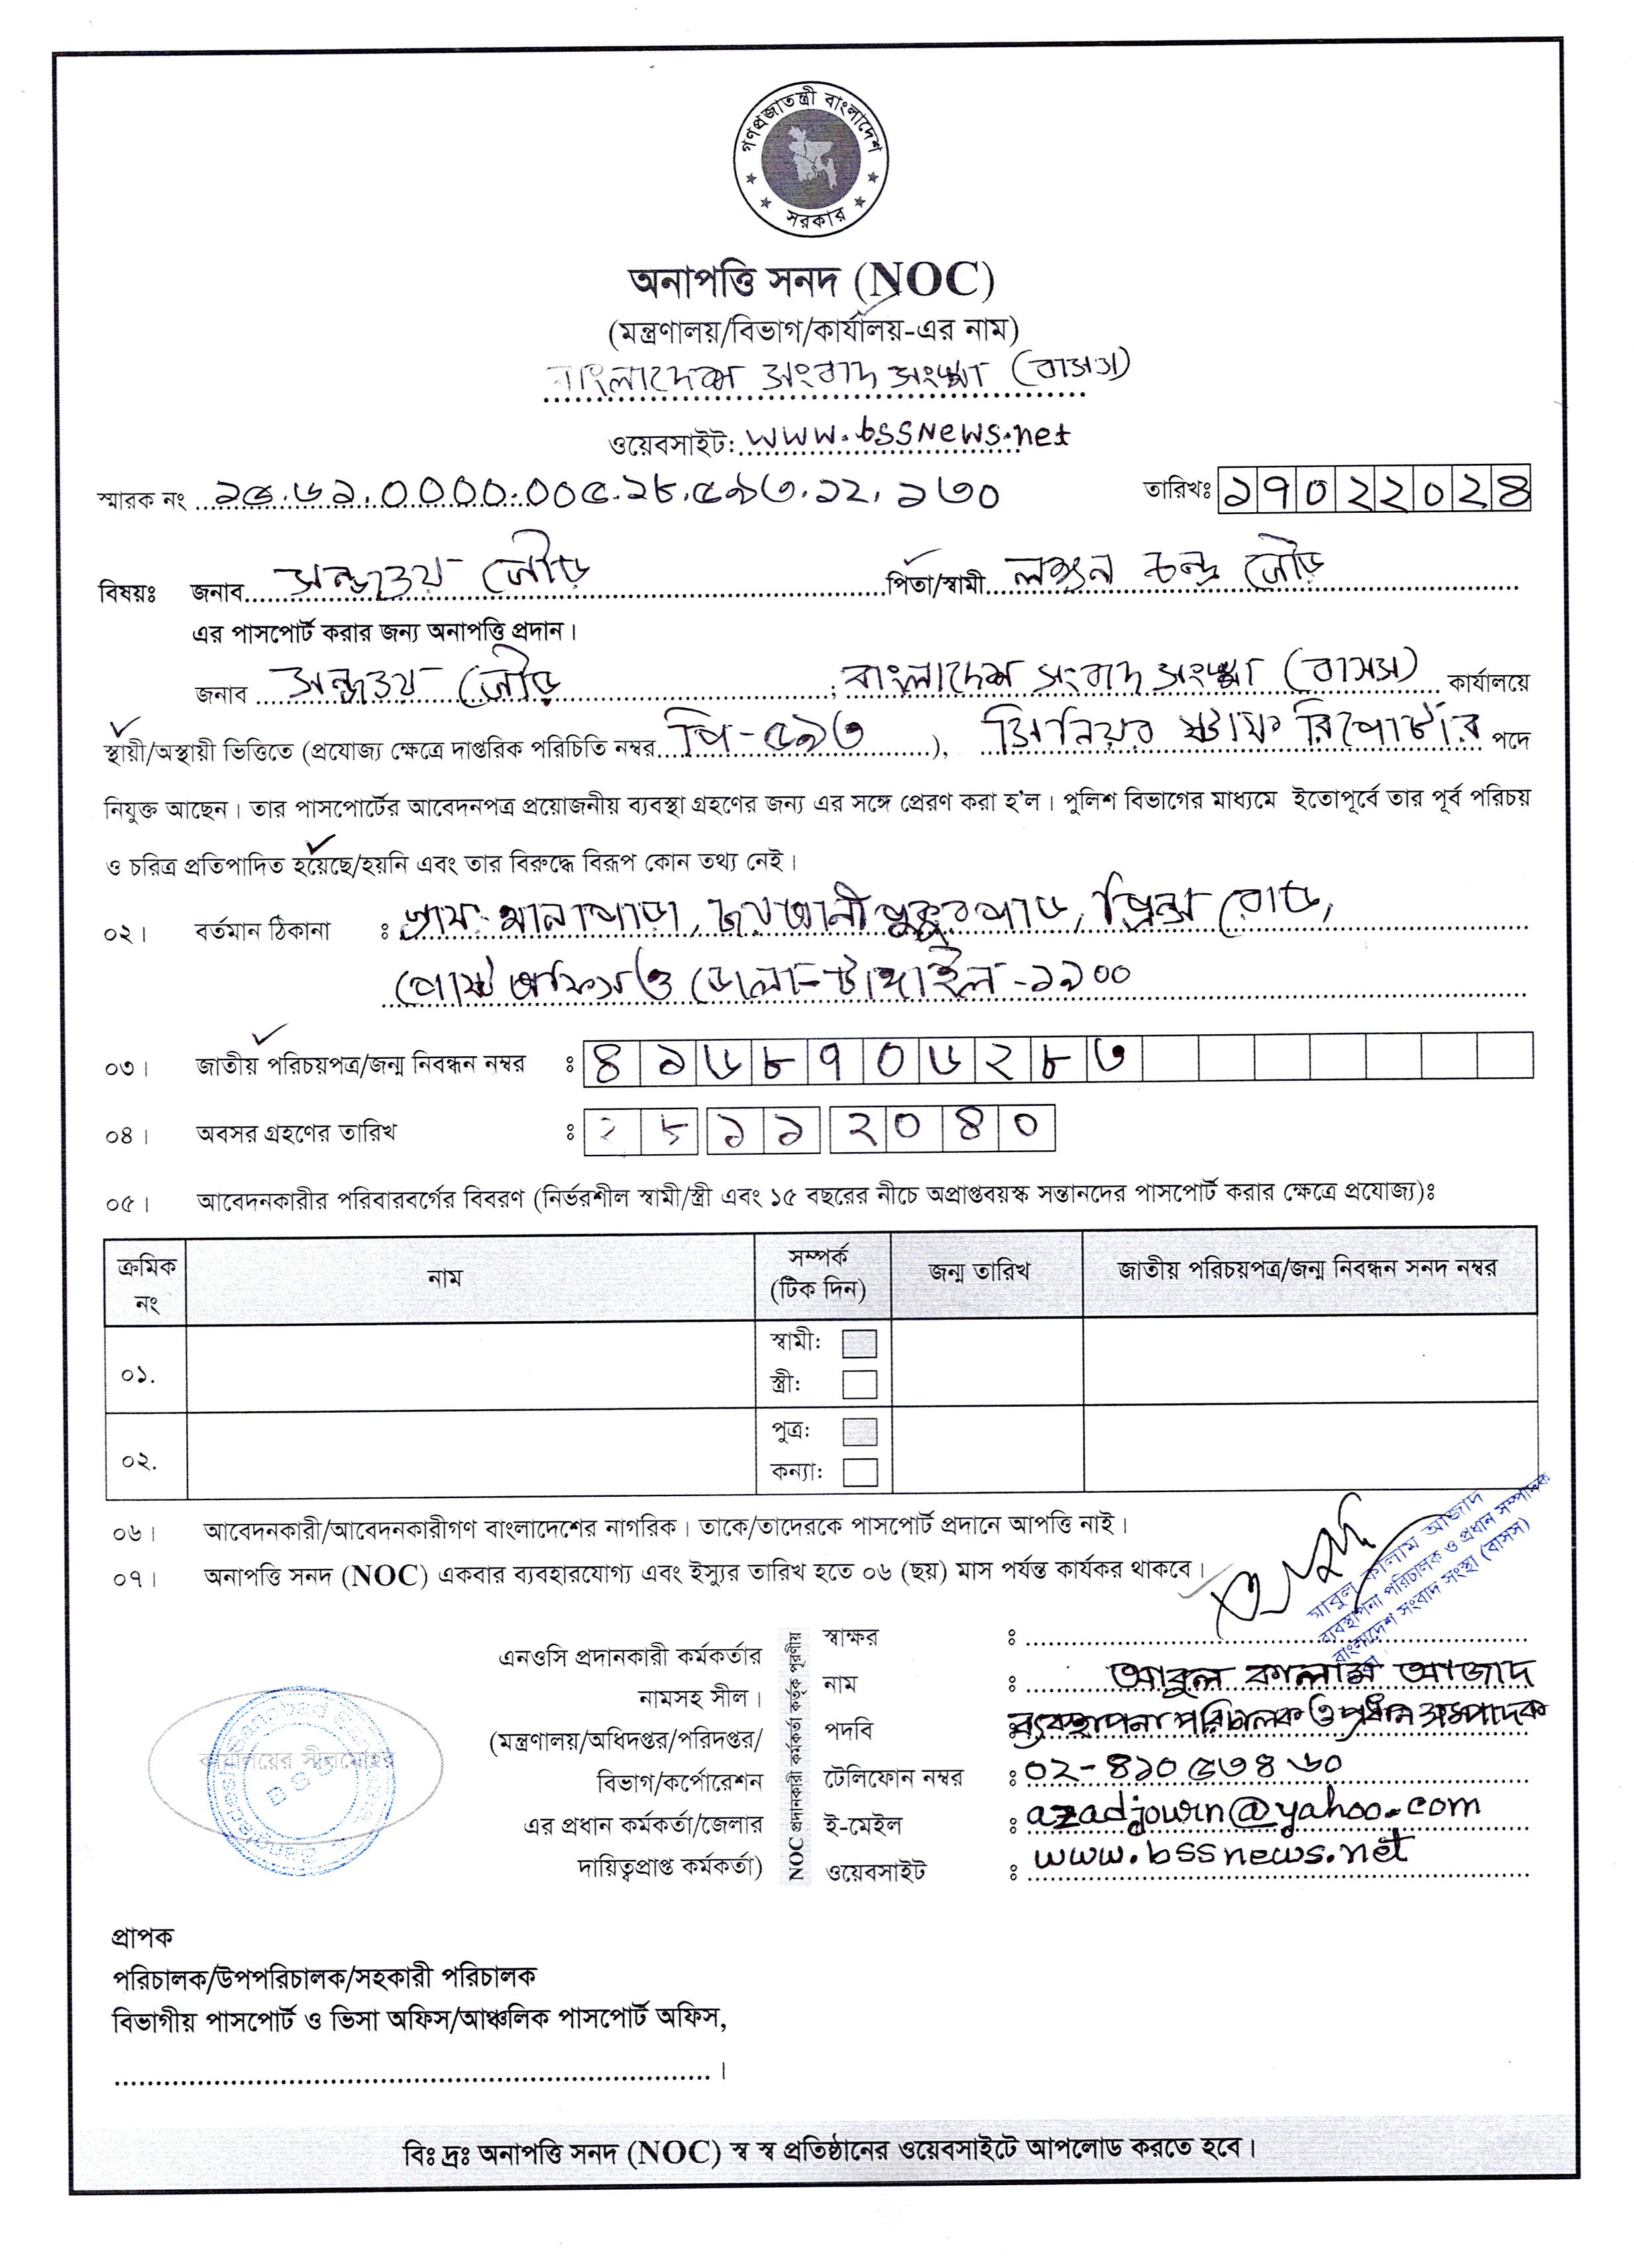 গণপ্রজাতন্ত্রী বাংলাদেশ
সরকার
অনাপত্তি সনদ (NOC)
(মন্ত্রণালয়/বিভাগ/কার্যালয়-এর নাম)
বাংলাদেশ সংবাদ সংস্থা (বাসস)
ওয়েবসাইট: www.bssnews.net
স্মারক নং ১৫.৬১.০০০০.০০৫.১৮.৫৯৩.১২.১৩০ তারিখঃ ১৭০২২০২৪
বিষয়ঃ জনাব পিতা/স্বামী চন্দ্র গৌড়
এর পাসপোর্ট করার জন্য অনাপত্তি প্রদান।
জনাব গৌড় ; বাংলাদেশ সংবাদ সংস্থা (বাসস) কার্যালয়ে
স্থায়ী/অস্থায়ী ভিত্তিতে (প্রযোজ্য ক্ষেত্রে দাপ্তরিক পরিচিতি নম্বর পি-৫৯৩), সিনিয়র স্টাফ রিপোর্টার পদে
নিযুক্ত আছেন। তার পাসপোর্টের আবেদনপত্র প্রয়োজনীয় ব্যবস্থা গ্রহণের জন্য এর সঙ্গে প্রেরণ করা হ'ল। পুলিশ বিভাগের মাধ্যমে ইতোপূর্বে তার পূর্ব পরিচয়
ও চরিত্র প্রতিপাদিত হয়েছে/হয়নি এবং তার বিরুদ্ধে বিরূপ কোন তথ্য নেই।
০২। বর্তমান ঠিকানা : পুকুরপাড়, রোড,
পোস্ট অফিস ও জেলা-টাঙ্গাইল-১৯০০
০৩। জাতীয় পরিচয়পত্র/জন্ম নিবন্ধন নম্বর : ৪১৬৮৭০৬২৮৩
০৪। অবসর গ্রহণের তারিখ : ২৮১১২০৪০
০৫। আবেদনকারীর পরিবারবর্গের বিবরণ (নির্ভরশীল স্বামী/স্ত্রী এবং ১৫ বছরের নীচে অপ্রাপ্তবয়স্ক সন্তানদের পাসপোর্ট করার ক্ষেত্রে প্রযোজ্য)ঃ
ক্রমিক নং নাম সম্পর্ক (টিক দিন) জন্ম তারিখ জাতীয় পরিচয়পত্র/জন্ম নিবন্ধন সনদ নম্বর
০১. স্বামী:
স্ত্রী:
০২. পুত্র:
কন্যা:
০৬। আবেদনকারী/আবেদনকারীগণ বাংলাদেশের নাগরিক। তাকে/তাদেরকে পাসপোর্ট প্রদানে আপত্তি নাই।
০৭। অনাপত্তি সনদ (NOC) একবার ব্যবহারযোগ্য এবং ইস্যুর তারিখ হতে ০৬ (ছয়) মাস পর্যন্ত কার্যকর থাকবে।
আবুল কালাম আজাদ
ব্যবস্থাপনা পরিচালক ও প্রধান সম্পাদক
বাংলাদেশ সংবাদ সংস্থা (বাসস)
এনওসি প্রদানকারী কর্মকর্তার
নামসহ সীল।
(মন্ত্রণালয়/অধিদপ্তর/পরিদপ্তর/
বিভাগ/কর্পোরেশন
এর প্রধান কর্মকর্তা/জেলার
দায়িত্বপ্রাপ্ত কর্মকর্তা)
কার্যালয়ের সীলমোহর
NOC প্রদানকারী কর্মকর্তা কর্তৃক পূরণীয়
স্বাক্ষর :
নাম : আবুল কালাম আজাদ
পদবি : ব্যবস্থাপনা পরিচালক ও প্রধান সম্পাদক
টেলিফোন নম্বর : ০২-৪১০৫৩৪৬০
ই-মেইল : azadjourn@yahoo.com
ওয়েবসাইট : www.bssnews.net
প্রাপক
পরিচালক/উপপরিচালক/সহকারী পরিচালক
বিভাগীয় পাসপোর্ট ও ভিসা অফিস/আঞ্চলিক পাসপোর্ট অফিস,
বিঃ দ্রঃ অনাপত্তি সনদ (NOC) স্ব স্ব প্রতিষ্ঠানের ওয়েবসাইটে আপলোড করতে হবে।